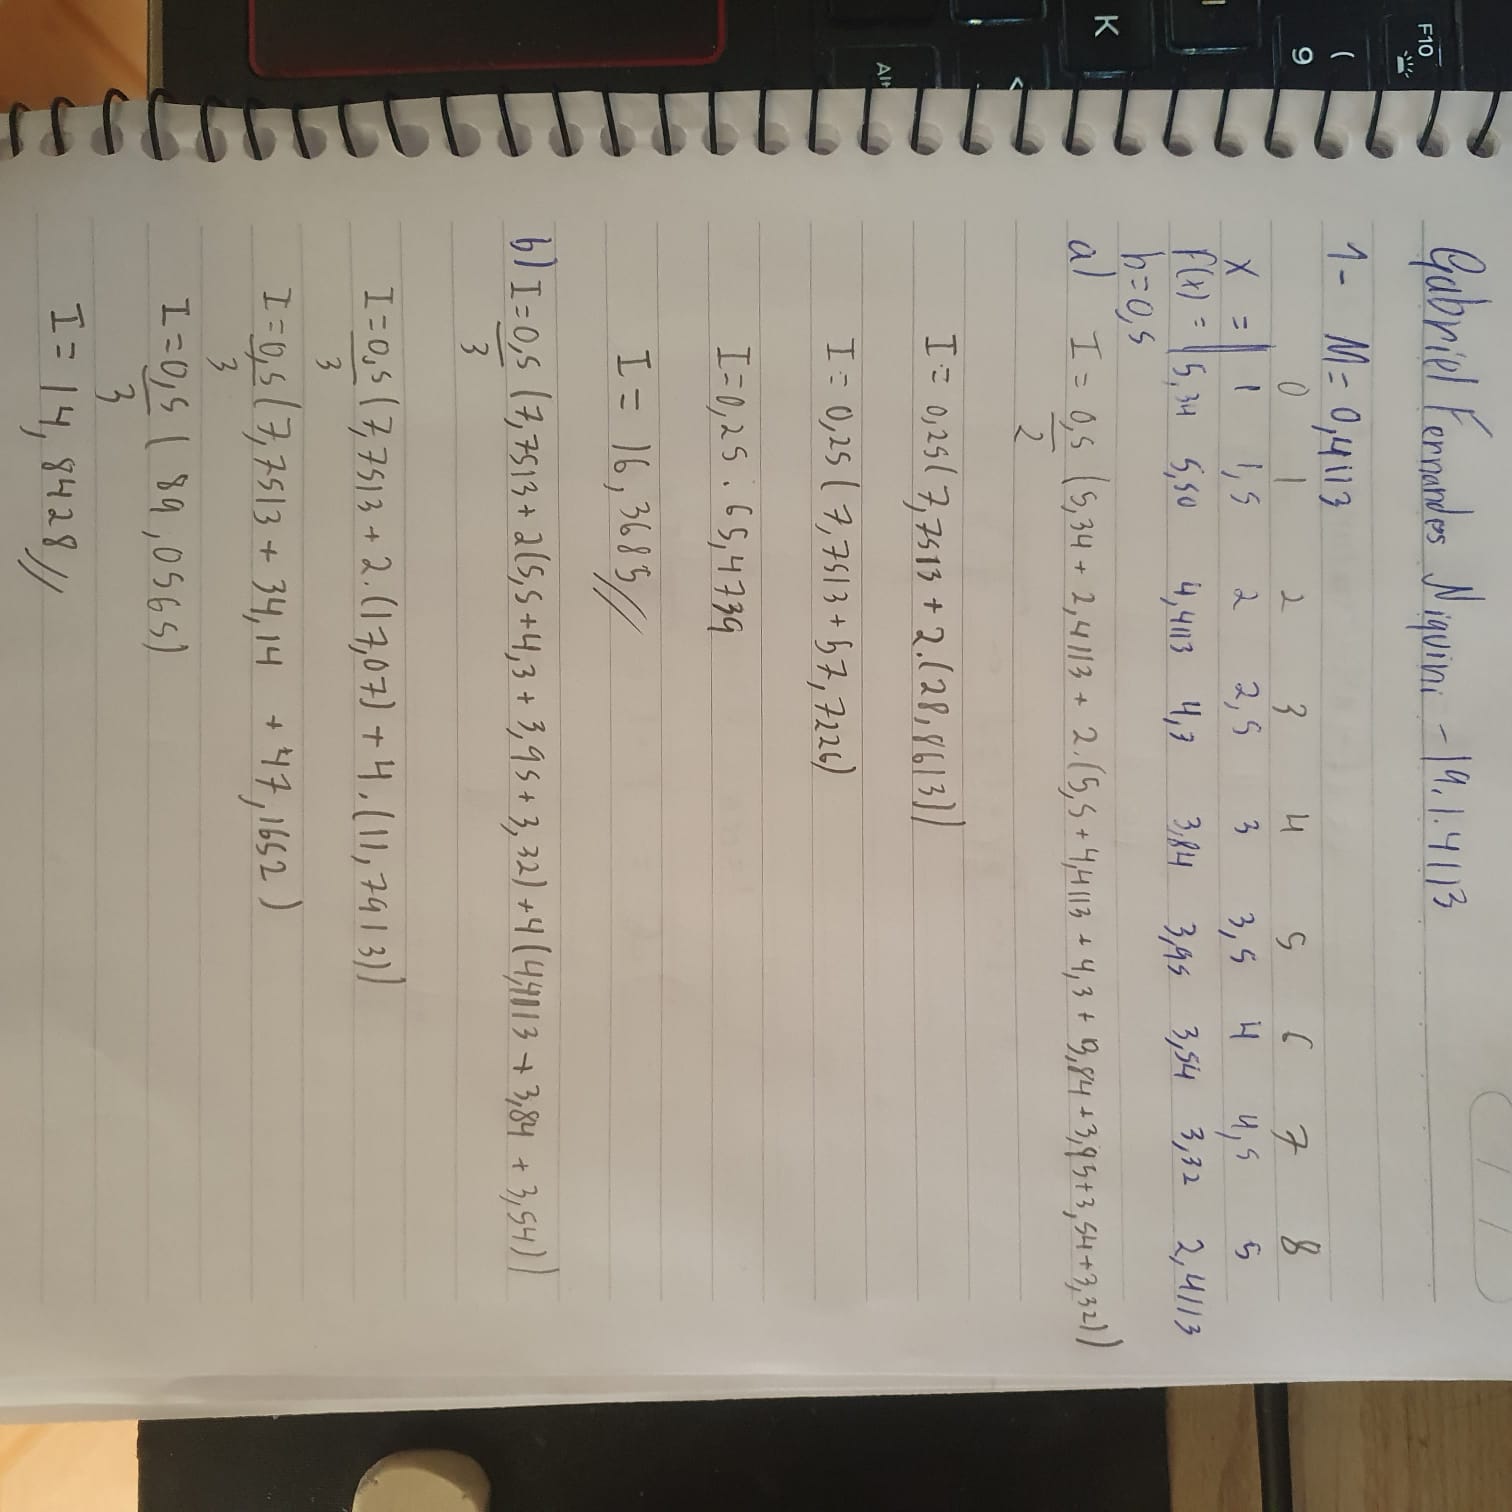 Gabriel Fernandes Niquini - 19.1.4113
1- M = 0,4113
0 1 2 3 4 5 6 7 8
x = | 1 1,5 2 2,5 3 3,5 4 4,5 5
f(x) = | 5,34 5,50 4,4113 4,3 3,84 3,95 3,54 3,32 2,4113
h=0,5
a) I = 0,5/2 (5,34 + 2,4113 + 2.(5,5+4,4113+4,3+3,84+3,95+3,54+3,32))
I = 0,25(7,7513 + 2.(28,8613))
I = 0,25(7,7513+57,7226)
I=0,25 . 65,4739
I = 16,3685//
b) I=0,5/3 (7,7513+2(5,5+4,3+3,95+3,32)+4(4,4113+3,84+3,54))
I=0,5/3 (7,7513+2.(17,07)+4.(11,7913))
I=0,5/3 (7,7513+34,14 +47,1652)
I=0,5/3 (89,0565)
I=14,8428//
F10
(
9
K
<
Alt